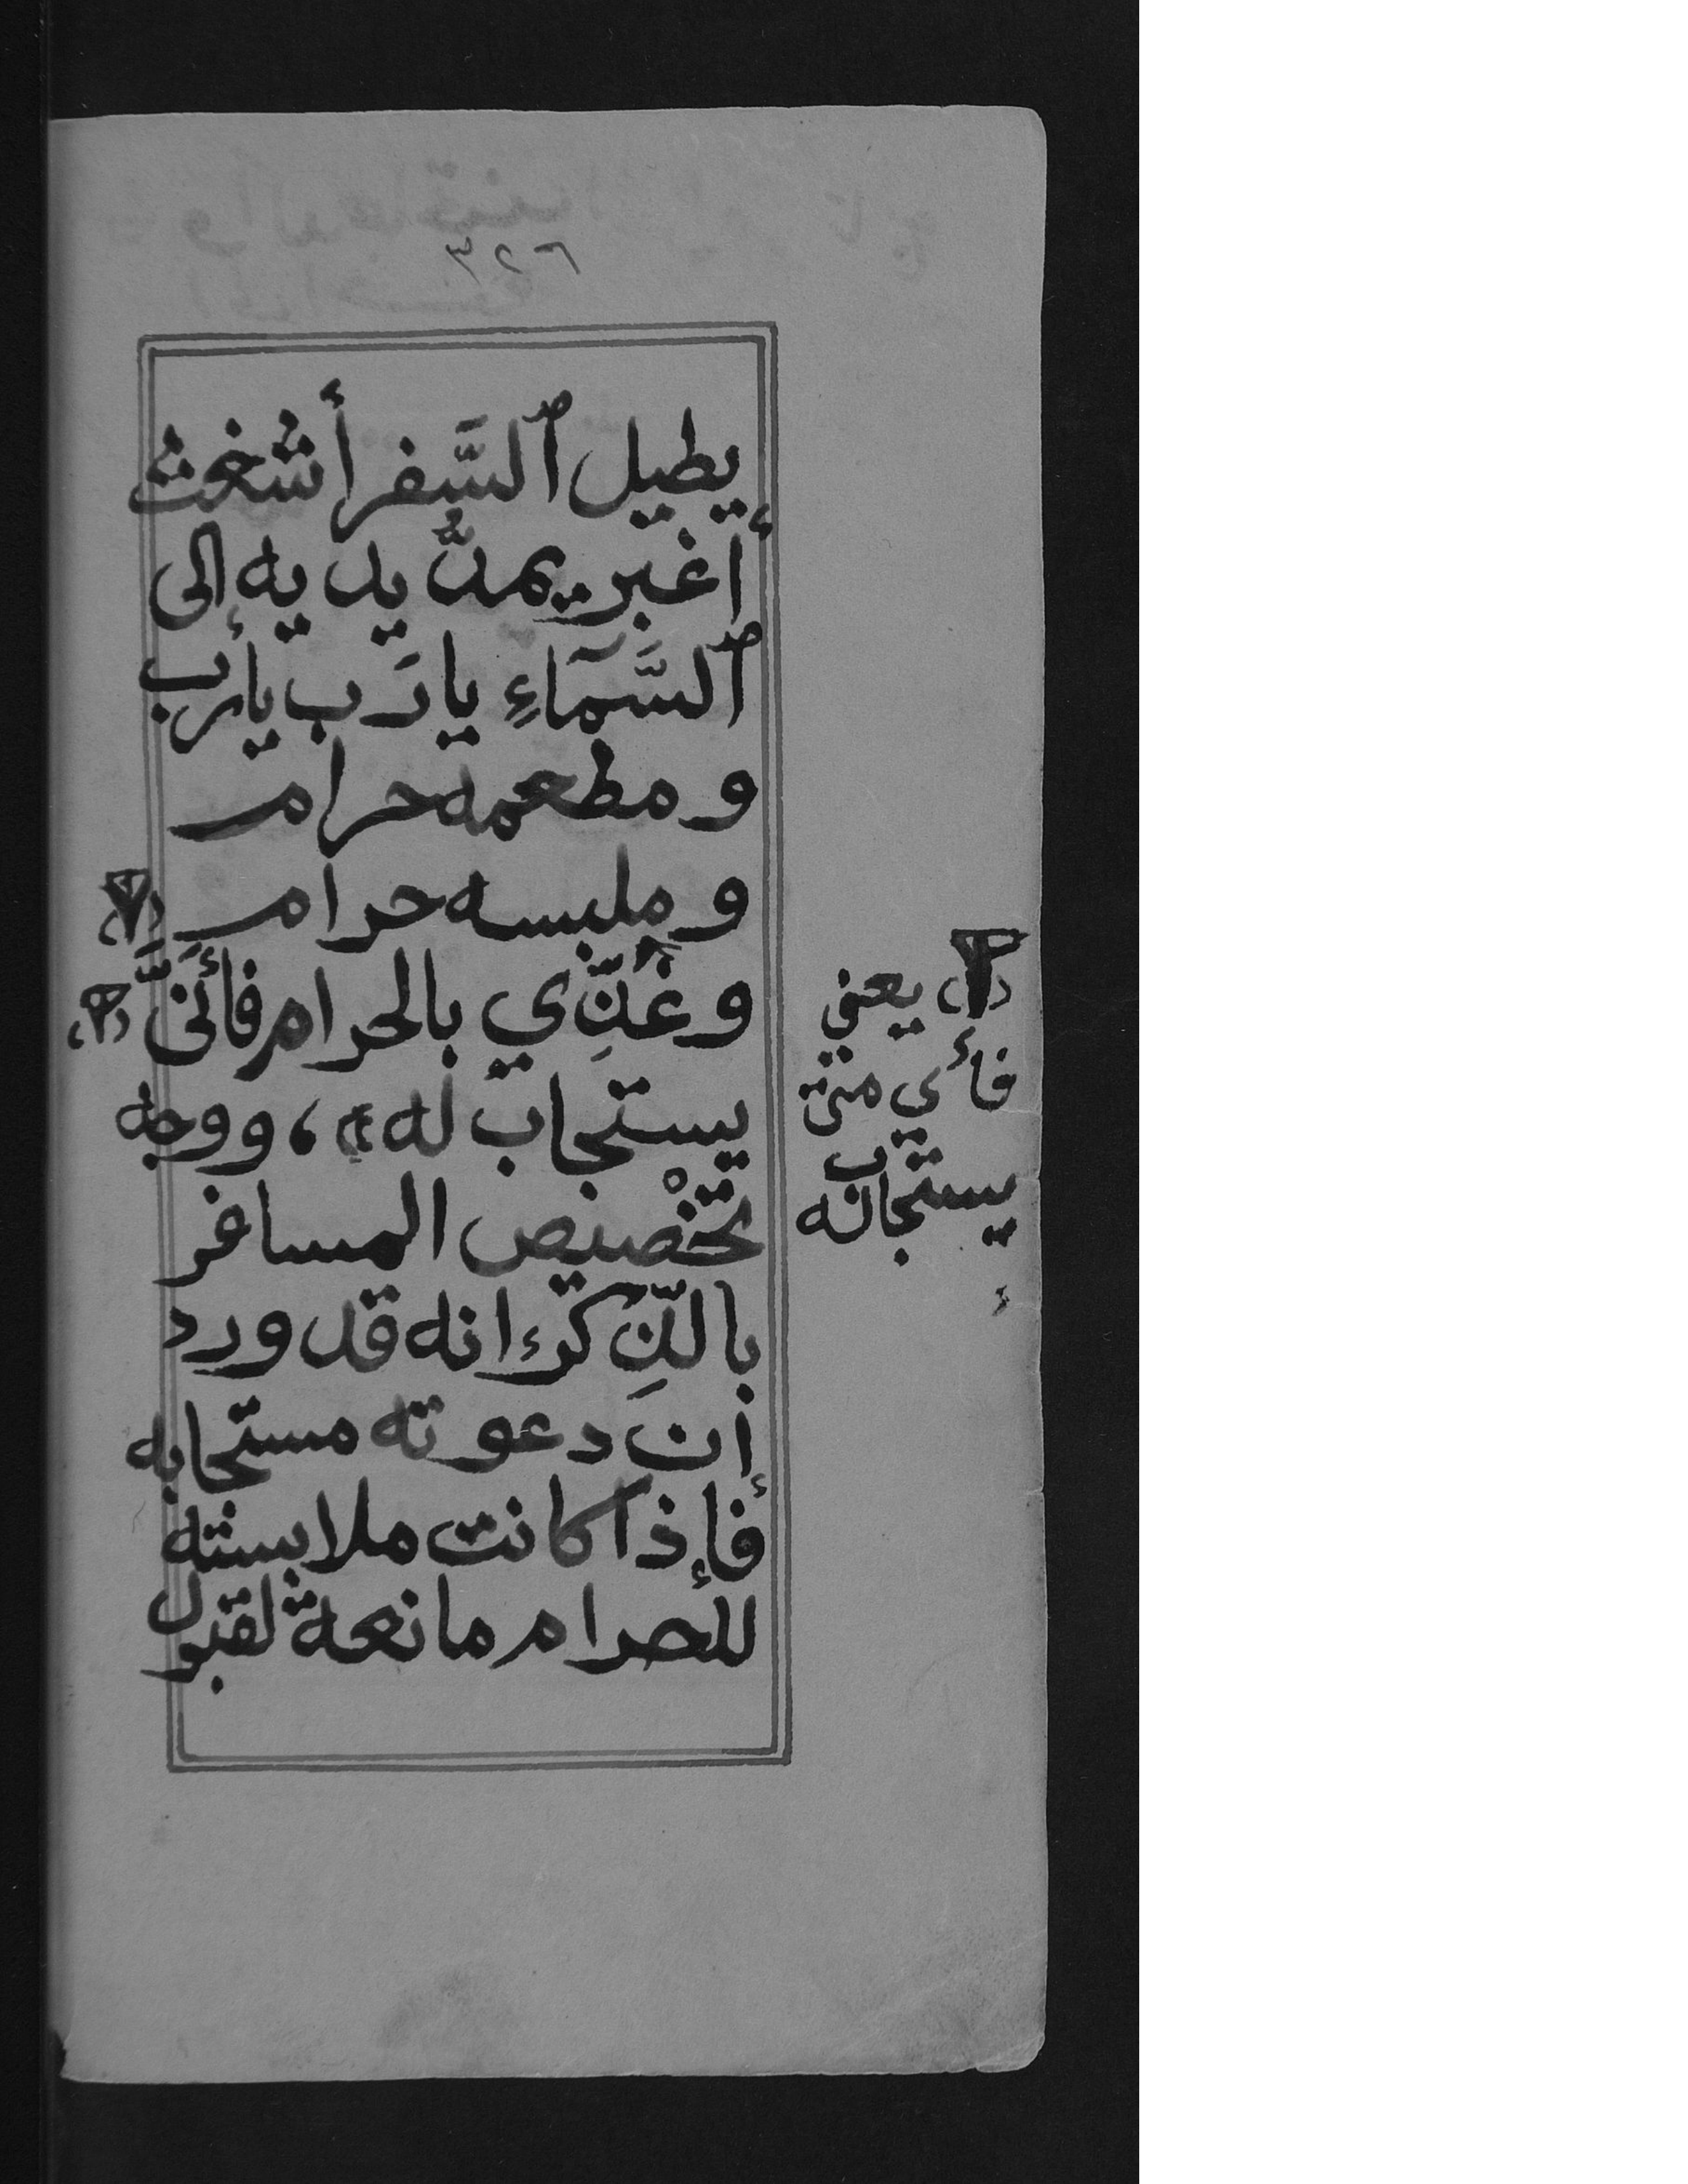 ٣٢٦
يطيل ٱلسَّفر أشغث
أغبر يمدُّ يديه الى
ٱلسَّمَآءِ يا رَب يا رب
ومطعمه حرام
وملبسه حرام
وغُذِّي بالحرام فأَنَّىٰ
يستجاب له، ووجه
تخْصيص المسافر
بالذِّكر انه قد ورد
أن دعوته مستجابه
فإذا كانت ملابسته
للحرام مانعة لقبول
(٢) يعني
فأي متى
يستجاب له